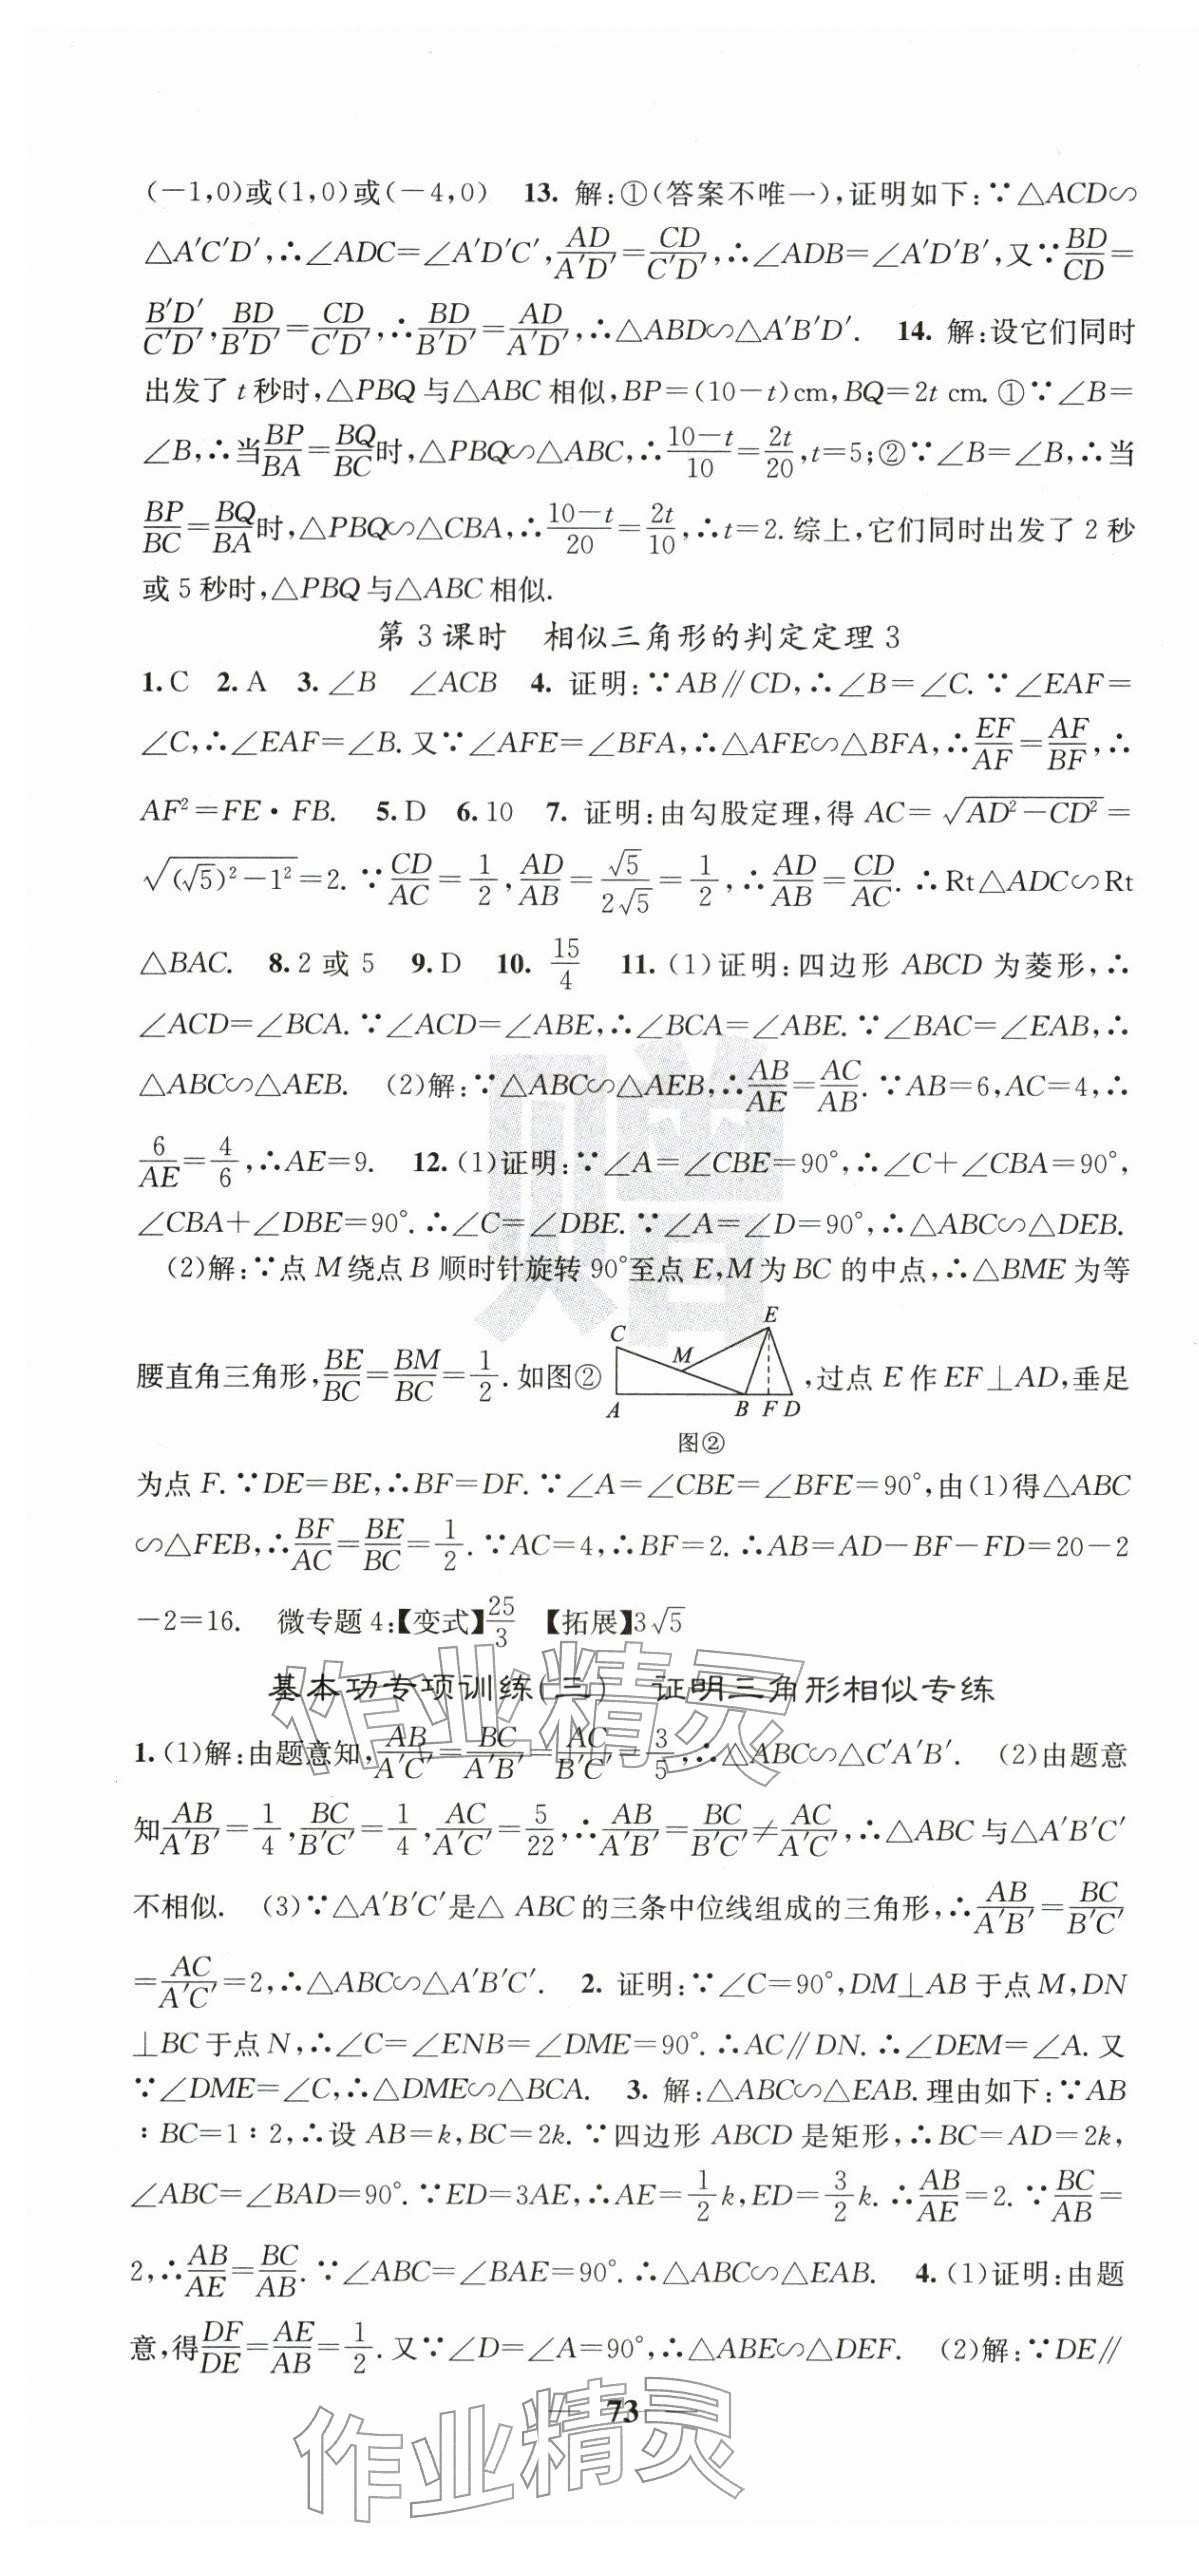 (－1,0)或(1,0)或(－4,0)　13. 解:①(答案不唯一),证明如下:∵△ACD∽
△A′C′D′,∴∠ADC=∠A′D′C′,AD/A′D′=CD/C′D′,∴∠ADB=∠A′D′B′,又∵BD/CD=
B′D′/C′D′,BD/B′D′=CD/C′D′,∴BD/B′D′=AD/A′D′,∴△ABD∽△A′B′D′.　14. 解:设它们同时
出发了 t 秒时,△PBQ 与△ABC 相似,BP=(10－t)cm,BQ=2t cm. ①∵∠B=
∠B,∴当BP/BA=BQ/BC时,△PBQ∽△ABC,∴(10－t)/10=2t/20,t=5;②∵∠B=∠B,∴当
BP/BC=BQ/BA时,△PBQ∽△CBA,∴(10－t)/20=2t/10,∴t=2. 综上,它们同时出发了 2 秒
或 5 秒时,△PBQ 与△ABC 相似.
第 3 课时　相似三角形的判定定理 3
1. C　2. A　3. ∠B　∠ACB　4. 证明:∵AB∥CD,∴∠B=∠C. ∵∠EAF=
∠C,∴∠EAF=∠B. 又∵∠AFE=∠BFA,∴△AFE∽△BFA,∴EF/AF=AF/BF,∴
AF²=FE·FB.　5. D　6. 10　7. 证明:由勾股定理,得 AC=√(AD²－CD²)=
√((√5)²－1²)=2. ∵CD/AC=1/2,AD/AB=√5/2√5=1/2,∴AD/AB=CD/AC. ∴Rt△ADC∽Rt
△BAC.　8. 2 或 5　9. D　10. 15/4　11. (1)证明:四边形 ABCD 为菱形,∴
∠ACD=∠BCA. ∵∠ACD=∠ABE,∴∠BCA=∠ABE. ∵∠BAC=∠EAB,∴
△ABC∽△AEB.　(2)解:∵△ABC∽△AEB,∴AB/AE=AC/AB. ∵AB=6,AC=4,∴
6/AE=4/6,∴AE=9.　12. (1)证明:∵∠A=∠CBE=90°,∴∠C+∠CBA=90°,
∠CBA+∠DBE=90°. ∴∠C=∠DBE. ∵∠A=∠D=90°,∴△ABC∽△DEB.
(2)解:∵点 M 绕点 B 顺时针旋转 90°至点 E,M 为 BC 的中点,∴△BME 为等
腰直角三角形,BE/BC=BM/BC=1/2. 如图② C M E A B F D ,过点 E 作 EF⊥AD,垂足
图②
为点 F. ∵DE=BE,∴BF=DF. ∵∠A=∠CBE=∠BFE=90°,由(1)得△ABC
∽△FEB,∴BF/AC=BE/BC=1/2. ∵AC=4,∴BF=2. ∴AB=AD－BF－FD=20－2
－2=16.　微专题 4:【变式】25/3　【拓展】3√5
基本功专项训练(三)　证明三角形相似专练
1. (1)解:由题意知,AB/A′C′=BC/A′B′=AC/B′C′=3/5,∴△ABC∽△C′A′B′.　(2)由题意
知AB/A′B′=1/4,BC/B′C′=1/4,AC/A′C′=5/22,∴AB/A′B′=BC/B′C′≠AC/A′C′,∴△ABC 与△A′B′C′
不相似.　(3)∵△A′B′C′是△ ABC 的三条中位线组成的三角形,∴AB/A′B′=BC/B′C′
=AC/A′C′=2,∴△ABC∽△A′B′C′.　2. 证明:∵∠C=90°,DM⊥AB 于点 M,DN
⊥BC 于点 N,∴∠C=∠ENB=∠DME=90°. ∴AC∥DN. ∴∠DEM=∠A. 又
∵∠DME=∠C,∴△DME∽△BCA.　3. 解:△ABC∽△EAB. 理由如下:∵AB
:BC=1:2,∴设 AB=k,BC=2k. ∵四边形 ABCD 是矩形,∴BC=AD=2k,
∠ABC=∠BAD=90°. ∵ED=3AE,∴AE=1/2k,ED=3/2k. ∴AB/AE=2. ∵BC/AB=
2,∴AB/AE=BC/AB. ∵∠ABC=∠BAE=90°. ∴△ABC∽△EAB.　4. (1)证明:由题
意,得DF/DE=AE/AB=1/2. 又∵∠D=∠A=90°,∴△ABE∽△DEF.　(2)解:∵DE∥
73
赠
作业精灵
作业精灵